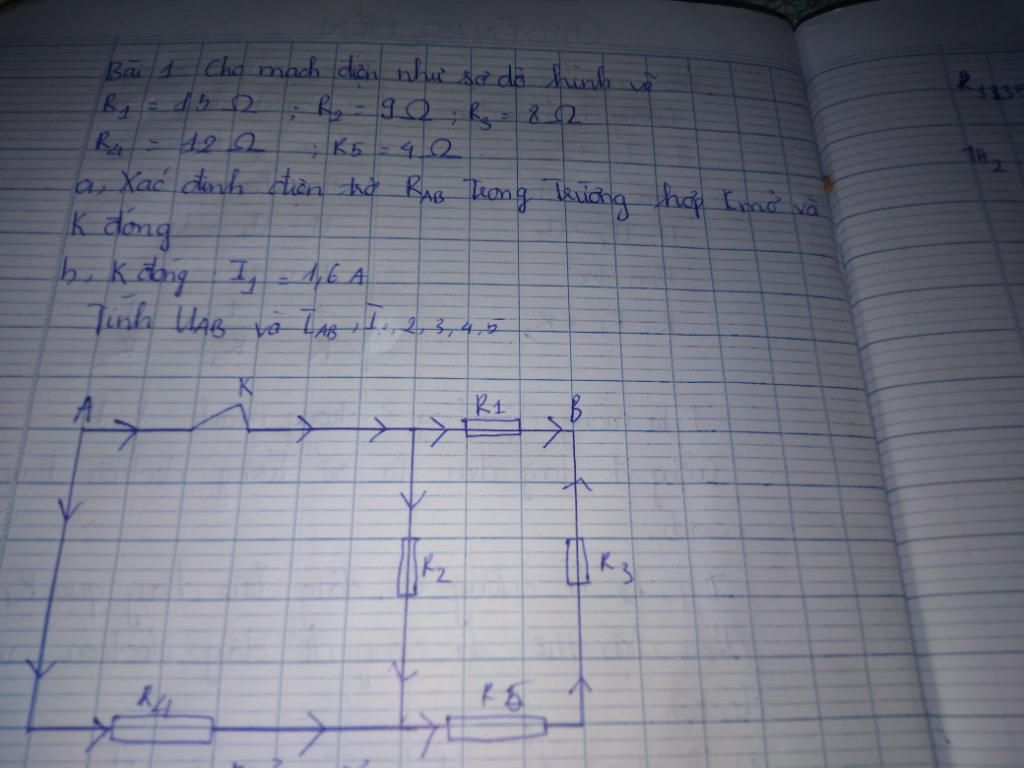 Bài 1 Cho mạch điện như sơ đồ hình vẽ
R₁ = 15 Ω ; R₂ = 9 Ω ; R₃ = 8 Ω
R₄ = 12 Ω ; R5 = 4 Ω
a, Xác định điện trở RAB Trong Trường hợp K mở và
K đóng
b, K đóng I₁ = 1,6 A
Tính UAB và IAB, I₁, 2, 3, 4, 5
A
K
R1
B
R2
R3
R4
R5